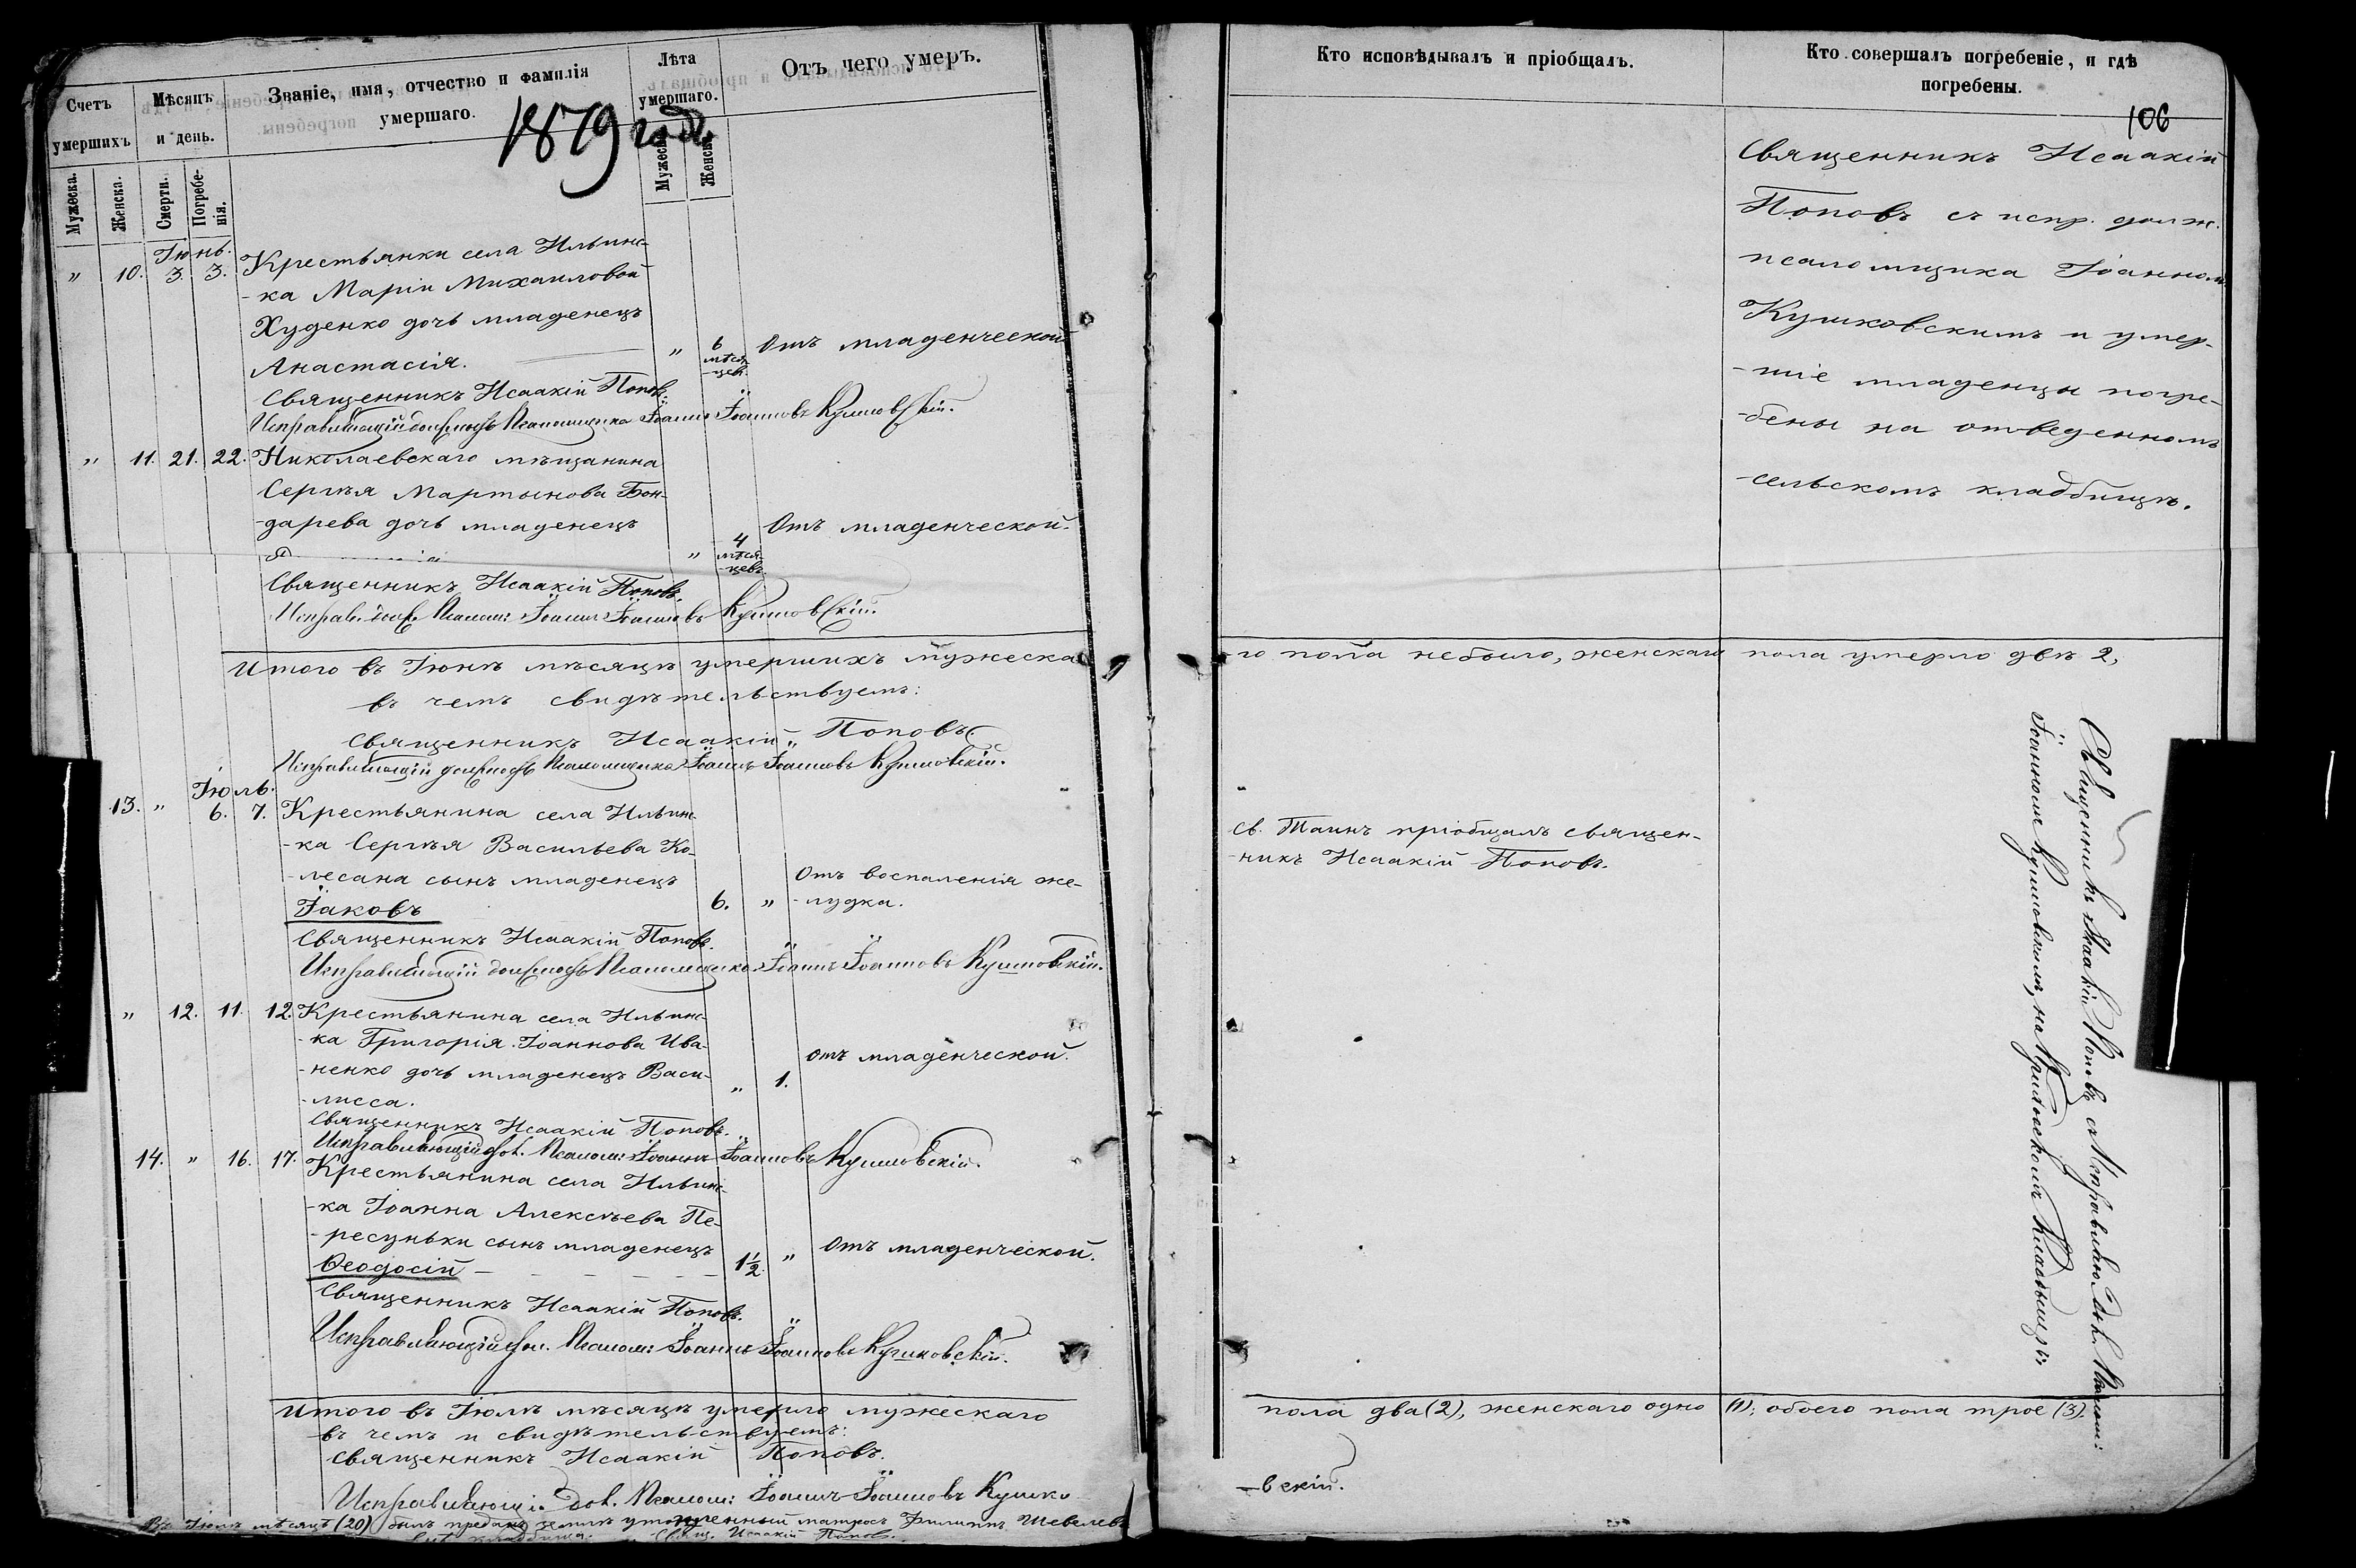 Счетъ умершихъ
Мѣсяцъ и день.
Званіе, имя, отчество и фамилія умершаго.
Лѣта умершаго.
Отъ чего умеръ.
Мужеска.
Женска.
Смерти.
Погребе-
нія.
Мужеска
Женска
1879 годъ
Іюнь.
" 10. 3. 3. Крестьянки села Ильинс-
-ка Маріи Михаиловой
Худенко дочь младенецъ
Анастасія. " 6 мѣся-
-цев. Отъ младенческой
Священникъ Исаакій Поповъ.
Исправляющій должность Псаломщика Іоаннъ Іоанновъ Кушковскій.
" 11. 21. 22. Николаевскаго мѣщанина
Сергѣя Мартынова Бон-
-дарева дочь младенецъ Отъ младенческой.
" 4 мѣся-
-цевъ.
Священникъ Исаакій Поповъ.
Исправ. долж. Псалом: Іоаннъ Іоанновъ Кушковскій.
Итого въ Іюнѣ мѣсяцѣ умершихъ мужеска
въ чемъ свидѣтельствуемъ:
Священникъ Исаакій Поповъ
Исправляющій должность Псаломщика Іоаннъ Іоанновъ Кушковскій.
Іюль.
13. " 6. 7. Крестьянина села Ильинс-
-ка Сергѣя Васильева Ко-
-лесана сынъ младенецъ Отъ воспаленія же-
Іаковъ 6. " -лудка.
Священникъ Исаакій Поповъ.
Исправляющій должность Псаломщика Іоаннъ Іоанновъ Кушковскій.
" 12. 11. 12. Крестьянина села Ильинс-
-ка Григорія Іоаннова Ива-
-ненко дочь младенецъ Васи- " 1. отъ младенческой.
-лисса.
Священникъ Исаакій Поповъ.
Исправляющій дол. Псалом: Іоаннъ Іоанновъ Кушковскій.
14. " 16. 17. Крестьянина села Ильинс-
-ка Іоанна Алексѣева Пе-
-ресуньки сынъ младенецъ
Ѳеодосій 1½ " Отъ младенческой.
Священникъ Исаакій Поповъ.
Исправляющій дол. Псалом: Іоаннъ Іоанновъ Кушковскій.
Итого въ Іюлѣ мѣсяцѣ умерло мужескаго
въ чемъ и свидѣтельствуемъ:
Священникъ Исаакій Поповъ.
Исправляющій дол. Псалом: Іоаннъ Іоанновъ Кушко
Въ Іюлѣ мѣсяцѣ (20) былъ преданъ землѣ утопленный матросъ Филиппъ Шевелевъ
кладбища. Свящ. Исаакій Поповъ.
Кто исповѣдывалъ и пріобщалъ.
Кто совершалъ погребеніе, и гдѣ
погребены.
106
Священникъ Исаакій
Поповъ съ испр. долж.
псаломщика Іоанномъ
Кушковскимъ и умер-
-шіе младенцы погре-
-бены на отведенномъ
сельскомъ кладбищѣ.
-го пола небыло, женскаго пола умерло двѣ 2,
Св. Таинъ пріобщалъ священ-
-никъ Исаакій Поповъ.
Священникъ Исаакій Поповъ съ Исправляю. дол. Псалом:
Іоанномъ Кушковскимъ, на Приходскомъ Кладбищѣ.
пола два (2), женскаго одно (1); обоего пола трое (3).
-вскій.